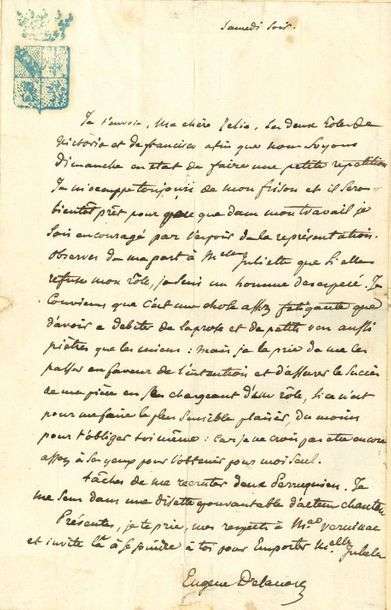 Samedi soir.
Je t'envoie, Ma chère Felia, les deux rôles de
Victoria et de francisco afin que nous soyons
dimanche en état de faire une petite repetition
Je m'occupe toujours de mon frison et il sera
bientôt prêt pour que dans mon travail je
sois encouragé par l'espoir de la représentation.
Observes de ma part à Melle Juliette que si elle
refuse mon rôle, je suis un homme desespéré. Je
Conviens que c'est une chose assez fatigante que
d'avoir a debiter de la prose et de petits vers aussi
piètres que les miens : mais je la prie de me les
passer en faveur de l'intention et d'assurer le succès
de ma pièce en se chargeant d'un rôle, si ce n'est
pour me faire le plus sensible plaisir, du moins
pour t'obliger toi même : car je ne crois pas être encore
assez à ses yeux pour l'obtenir pour moi seul.
tâches de me recruter deux perruquiers. Je
me sens dans une disette épouvantable d'acteurs chantans
Présentes, je te prie, mes respects à Mad verninac
et invite la à se joindre à toi pour Emporter Melle Juliette
Eugène Delacroix